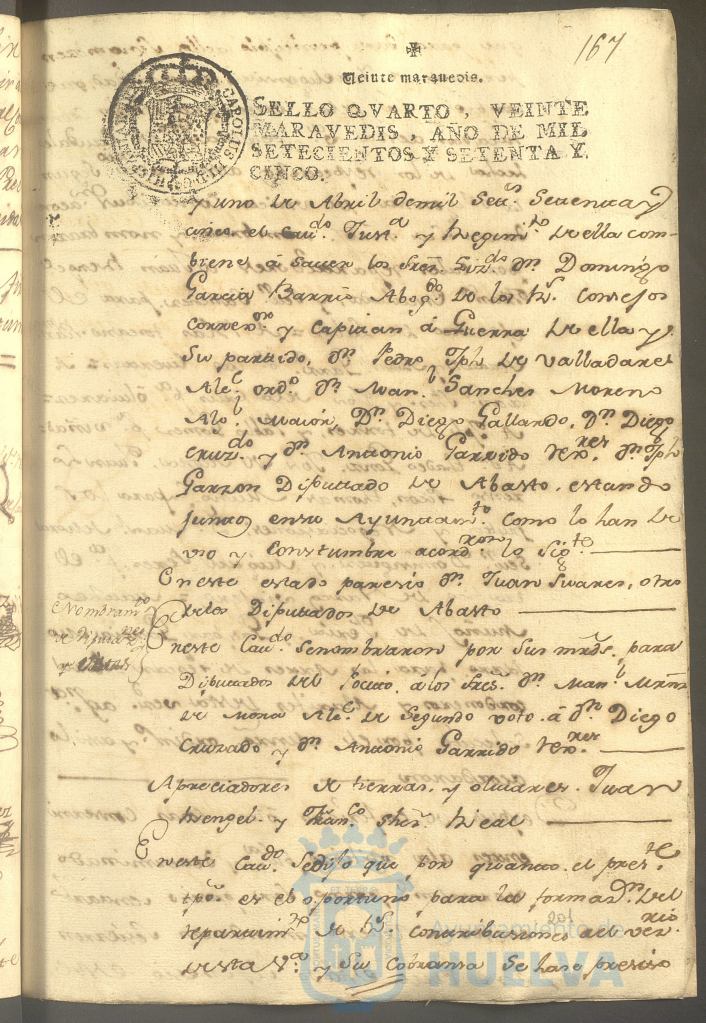 167
Veinte marauedis.
SELLO QVARTO, VEINTE
MARAVEDIS, AÑO DE MIL
SETECIENTOS Y SETENTA Y
CINCO.
CAROLUS III D.G. HISPANIAR
y uno de Abril demil Setᵗˢ. Setenta y
cinco el cauᵈᵒ. Justᵃ y Regimᵗᵒ de ella com
biene á sauer los Sreˢ. Dⁿ. Domingo
Garcia Barrio Abogᵈᵒ de los Rˢ. Consejos
correxᵒʳ y capitan á Guerra de ella y
Su partido, Dⁿ Pedro Jph de Valladares
Alcᵉ ordᵒ Dⁿ Manˡ Sanches Moreno
Alᵒ Maior, Dⁿ Diego Gallardo, Dⁿ Diego
Cruzᵈᵒ y Dⁿ Antonio Garrido Rexʳᵉˢ. Dⁿ Jph
Garzon Diputtado de Abasto, estando
juntos en su Ayuntamᵗᵒ como lo han de
vso y Constumbre acordᵃʳᵒⁿ lo Sigᵗᵉ
En este estado paresio Dⁿ Juan Suares, otro
delos Diputtados de Abasto
Nombramᵗᵒ
de Diputaᵈᵒˢ
En este Cauᵈᵒ senombraron por Sus mrᵈˢ. para
Diputtados del Pocito á los Sreˢ. Dⁿ Manˡ Mrñ
de Mora Alcᵉ de Segundo voto á Dⁿ Diego
Cruzado y Dⁿ Antonio Garrido Rexʳᵉˢ
Apreciadores de tierras, y oliuares Juan
Rengel y Franᶜᵒ Real
En este Cauᵈᵒ Sedijo que por quanto el presᵗᵉ
tpᵒ es el oportuno para la formaᵒⁿ del
repartimᵗᵒ de Rˢ Contribusiones del Vezʳⁱᵒ
de esta Vᵃ y Su Cobransa Se hase presiso
Ayuntamiento de
HUELVA